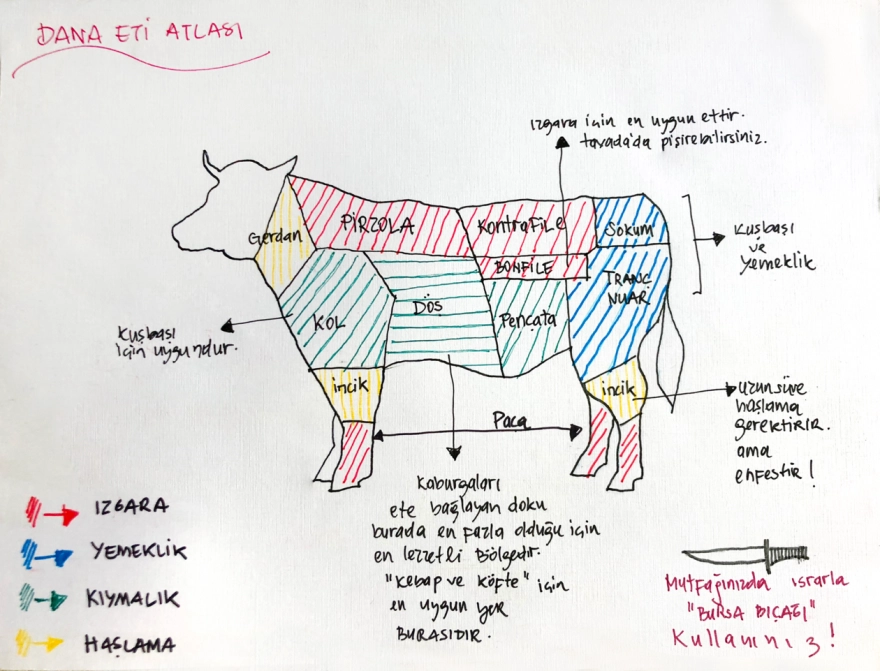 DANA ETİ ATLASI
Izgara için en uygun ettir.
tavada'da pişirebilirsiniz.
Gerdan
PİRZOLA
KontraFiLe
Sokum
BONFİLE
TRANÇ
NUAR
Kuşbaşı
ve
yemeklik
KOL
DÖŞ
Pençata
Kuşbaşı
için uygundur.
incik
incik
Paça
uzun süre
haşlama
gerektirir.
ama
enfestir!
Kaburgaları
ete bağlayan doku
burada en fazla olduğu için
en lezzetli Bölgedir.
"Kebap ve köfte" için
en uygun yer
BURASIDIR.
IZGARA
YEMEKLİK
KIYMALIK
HAŞLAMA
Mutfağınızda ısrarla
"BURSA BIÇAĞI"
Kullanınız!